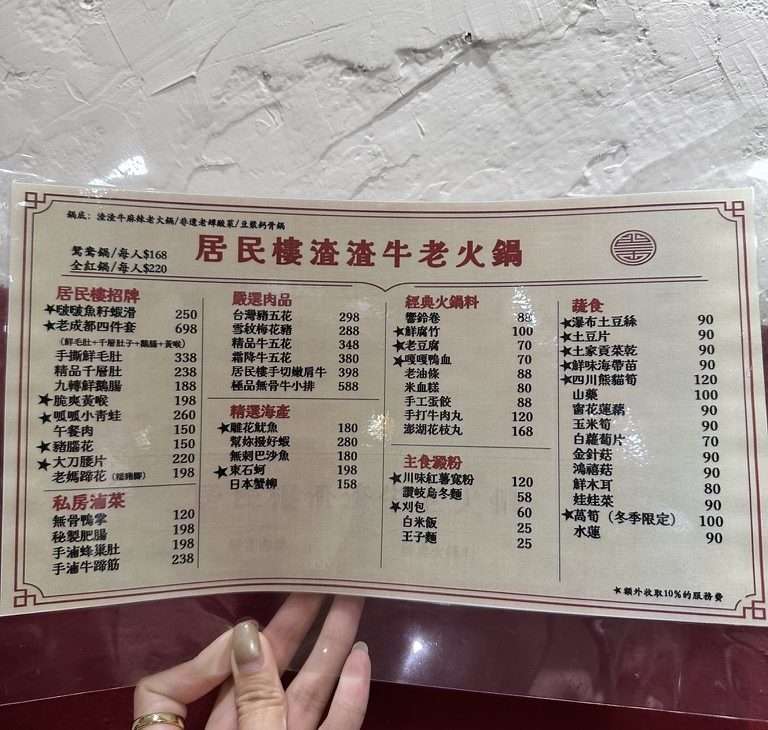 鍋底：渣渣牛麻辣老火鍋/非遺老罈酸菜/豆漿鈣骨鍋
鴛鴦鍋/每人$168
全紅鍋/每人$220
居民樓渣渣牛老火鍋
居民樓招牌
★啵啵魚籽蝦滑 250
★老成都四件套 698
（鮮毛肚+千層肚子+鵝腸+黃喉）
手撕鮮毛肚 338
精品千層肚 238
九轉鮮鵝腸 188
★脆爽黃喉 198
★呱呱小青蛙 260
午餐肉 150
★豬腦花 150
★大刀腰片 220
老媽蹄花（糯豬腳） 198
私房滷菜
無骨鴨掌 120
秘製肥腸 198
手滷蜂巢肚 198
手滷牛蹄筋 238
嚴選肉品
台灣豬五花 298
雪紋梅花豬 288
精品牛五花 348
霜降牛五花 380
居民樓手切嫩肩牛 398
極品無骨牛小排 588
精選海產
★雕花魷魚 180
幫妳撥好蝦 280
無刺巴沙魚 180
★東石蚵 198
日本蟹柳 158
經典火鍋料
響鈴卷 88
★鮮腐竹 100
★老豆腐 70
★嘎嘎鴨血 70
老油條 88
米血糕 80
手工蛋餃 88
手打牛肉丸 120
澎湖花枝丸 168
主食澱粉
★川味紅薯寬粉 120
讚岐烏冬麵 58
★刈包 60
白米飯 25
王子麵 25
蔬食
★瀑布土豆絲 90
★土豆片 90
★土家貢菜乾 90
★鮮味海帶苗 90
★四川熊貓筍 120
山藥 100
窗花蓮藕 90
玉米筍 90
白蘿蔔片 70
金針菇 90
鴻禧菇 90
鮮木耳 80
娃娃菜 90
★萵筍（冬季限定） 100
水蓮 90
★額外收取10%的服務費